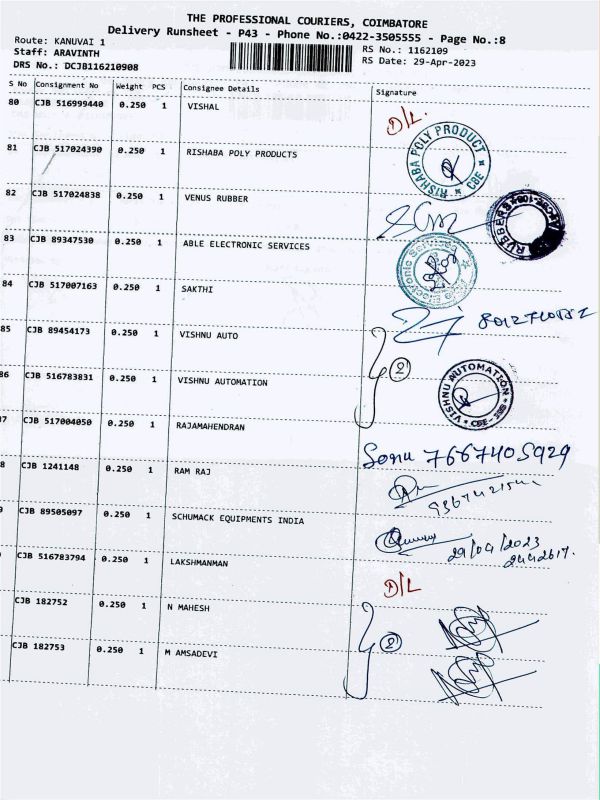 THE PROFESSIONAL COURIERS, COIMBATORE
Delivery Runsheet - P43 - Phone No.:0422-3505555 - Page No.:8
Route: KANUVAI 1
RS No.: 1162109
Staff: ARAVINTH
RS Date: 29-Apr-2023
DRS No.: DCJB116210908
S No Consignment No Weight PCS Consignee Details Signature
80 CJB 516999440 0.250 1 VISHAL D/L
81 CJB 517024390 0.250 1 RISHABA POLY PRODUCTS
RISHABA POLY PRODUCT * CBE *
82 CJB 517024838 0.250 1 VENUS RUBBER
RUBBERS
83 CJB 89347530 0.250 1 ABLE ELECTRONIC SERVICES
Electronic Services
84 CJB 517007163 0.250 1 SAKTHI
85 CJB 89454173 0.250 1 VISHNU AUTO
2
86 CJB 516783831 0.250 1 VISHNU AUTOMATION
VISHNU AUTOMATION
7 CJB 517004050 0.250 1 RAJAMAHENDRAN
Sonu 7667405929
8 CJB 1241148 0.250 1 RAM RAJ
CJB 89505097 0.250 1 SCHUMACK EQUIPMENTS INDIA
29/04/2023
2442617.
CJB 516783794 0.250 1 LAKSHMANMAN D/L
CJB 182752 0.250 1 N MAHESH
2
CJB 182753 0.250 1 M AMSADEVI